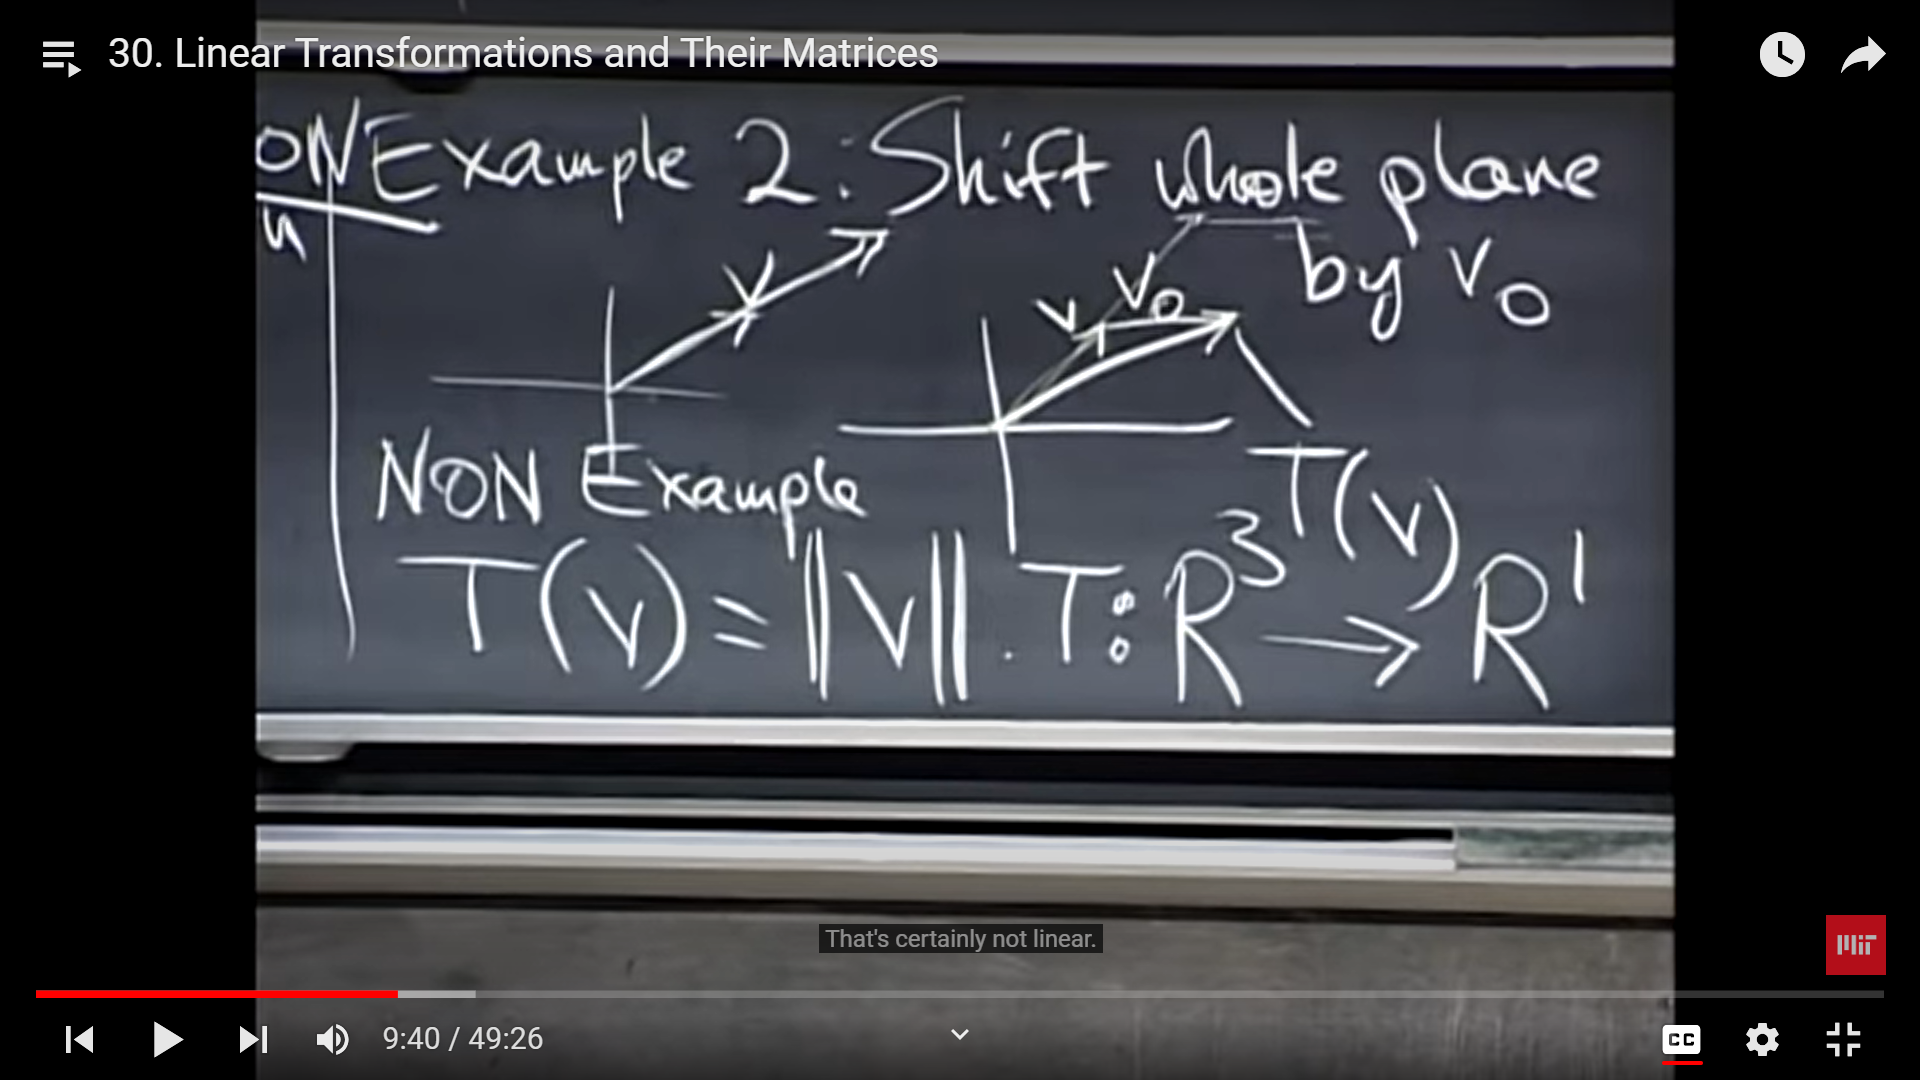 30. Linear Transformations and Their Matrices
ON Example 2: Shift whole plane
by v0
v
v
v0
T(v)
NON Example
T(v) = ||v||. T: R³ → R¹
That's certainly not linear.
MIT
9:40 / 49:26
CC